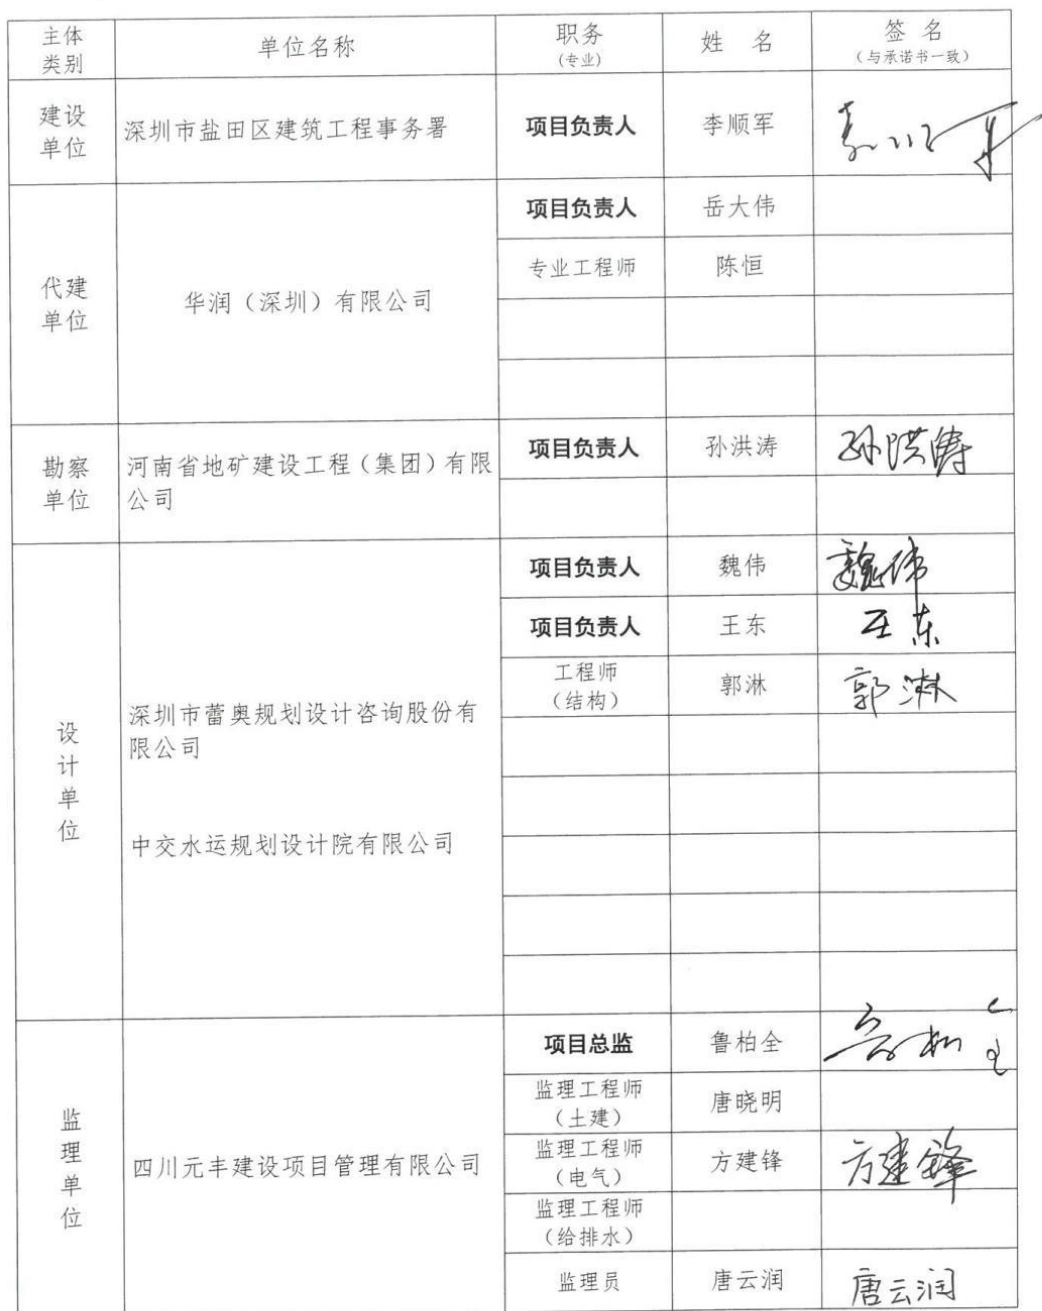 主体
类别
单位名称
职务
(专业)
姓 名
签 名
(与承诺书一致)
建设
单位
深圳市盐田区建筑工程事务署
项目负责人
李顺军
李顺军
代建
单位
华润（深圳）有限公司
项目负责人
岳大伟
专业工程师
陈恒
勘察
单位
河南省地矿建设工程（集团）有限
公司
项目负责人
孙洪涛
孙洪涛
设
计
单
位
深圳市蕾奥规划设计咨询股份有
限公司
中交水运规划设计院有限公司
项目负责人
魏伟
魏伟
项目负责人
王东
王东
工程师
（结构）
郭淋
郭淋
监
理
单
位
四川元丰建设项目管理有限公司
项目总监
鲁柏全
鲁柏全
监理工程师
（土建）
唐晓明
监理工程师
（电气）
方建锋
方建锋
监理工程师
（给排水）
监理员
唐云润
唐云润